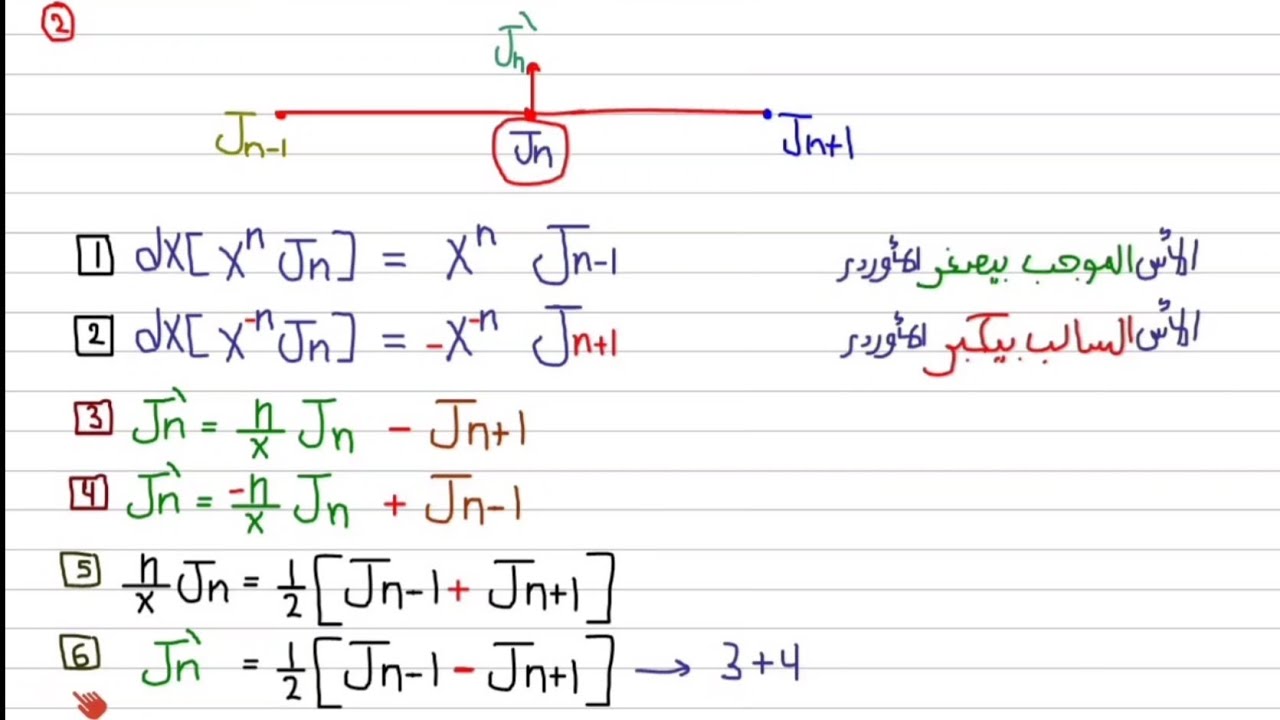 2
Jn`
Jn-1 Jn Jn+1
1 dx[x^n Jn] = x^n Jn-1 الأُس الموجب بيصغر الأوردر
2 dx[x^-n Jn] = -x^-n Jn+1 الأُس السالب بيكبر الأوردر
3 Jn` = n/x Jn - Jn+1
4 Jn` = -n/x Jn + Jn-1
5 n/x Jn = 1/2 [Jn-1 + Jn+1]
6 Jn` = 1/2 [Jn-1 - Jn+1] → 3+4